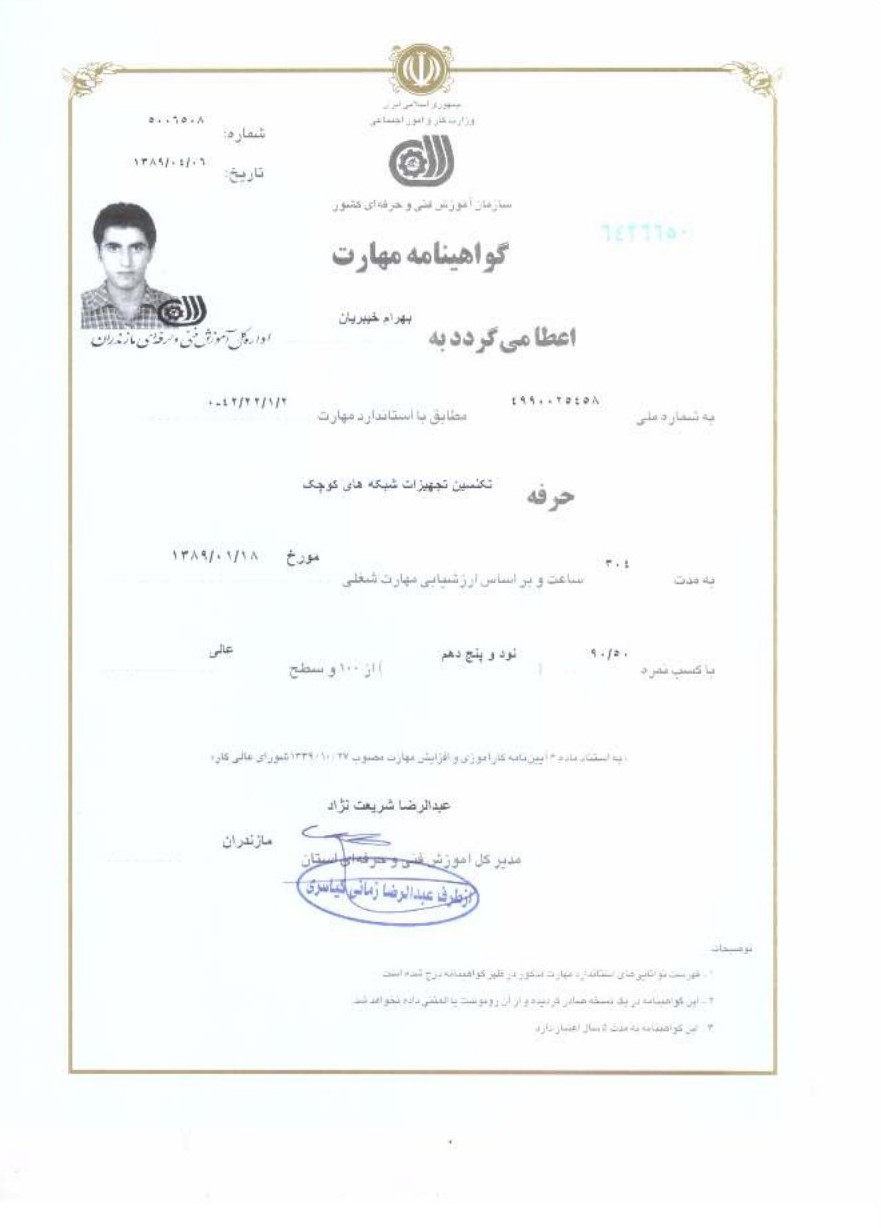 جمهوری اسلامی ایران
وزارت کار و امور اجتماعی
شماره: ۵۰۰۶۵۰۸
تاریخ: ۱۳۸۹/۰۴/۰۶
سازمان آموزش فنی و حرفه‌ای کشور
٦٤٢٦٦٥٠
گواهینامه مهارت
اعطا می‌گردد به بهرام خیبریان
اداره کل آموزش فنی و حرفه‌ای مازندران
به شماره ملی ٤٩٩٠٠٢٥٤٥٨ مطابق با استاندارد مهارت ۰-٤٢/٢٢/١/٢
حرفه تکنسین تجهیزات شبکه های کوچک
به مدت ۳۰٤ ساعت و بر اساس ارزشیابی مهارت شغلی مورخ ۱۳۸۹/۰۱/۱۸
با کسب نمره ۹۰/۵۰ ( نود و پنج دهم ) از ۱۰۰ و سطح عالی
به استناد ماده ۳ آیین‌نامه کارآموزی و افزایش مهارت مصوب ۱۳۳۹/۱۰/۲۷ شورای عالی کار
عبدالرضا شریعت نژاد
مدیر کل آموزش فنی و حرفه‌ای استان مازندران
ازطرف عبدالرضا زمانی کیاسری
توضیحات
۱ - فهرست توانایی‌های استاندارد مهارت مذکور در ظهر گواهینامه درج شده است
۲ - این گواهینامه در یک نسخه صادر گردیده و از آن رونوشت یا المثنی داده نخواهد شد
۳ - این گواهینامه به مدت ۵ سال اعتبار دارد